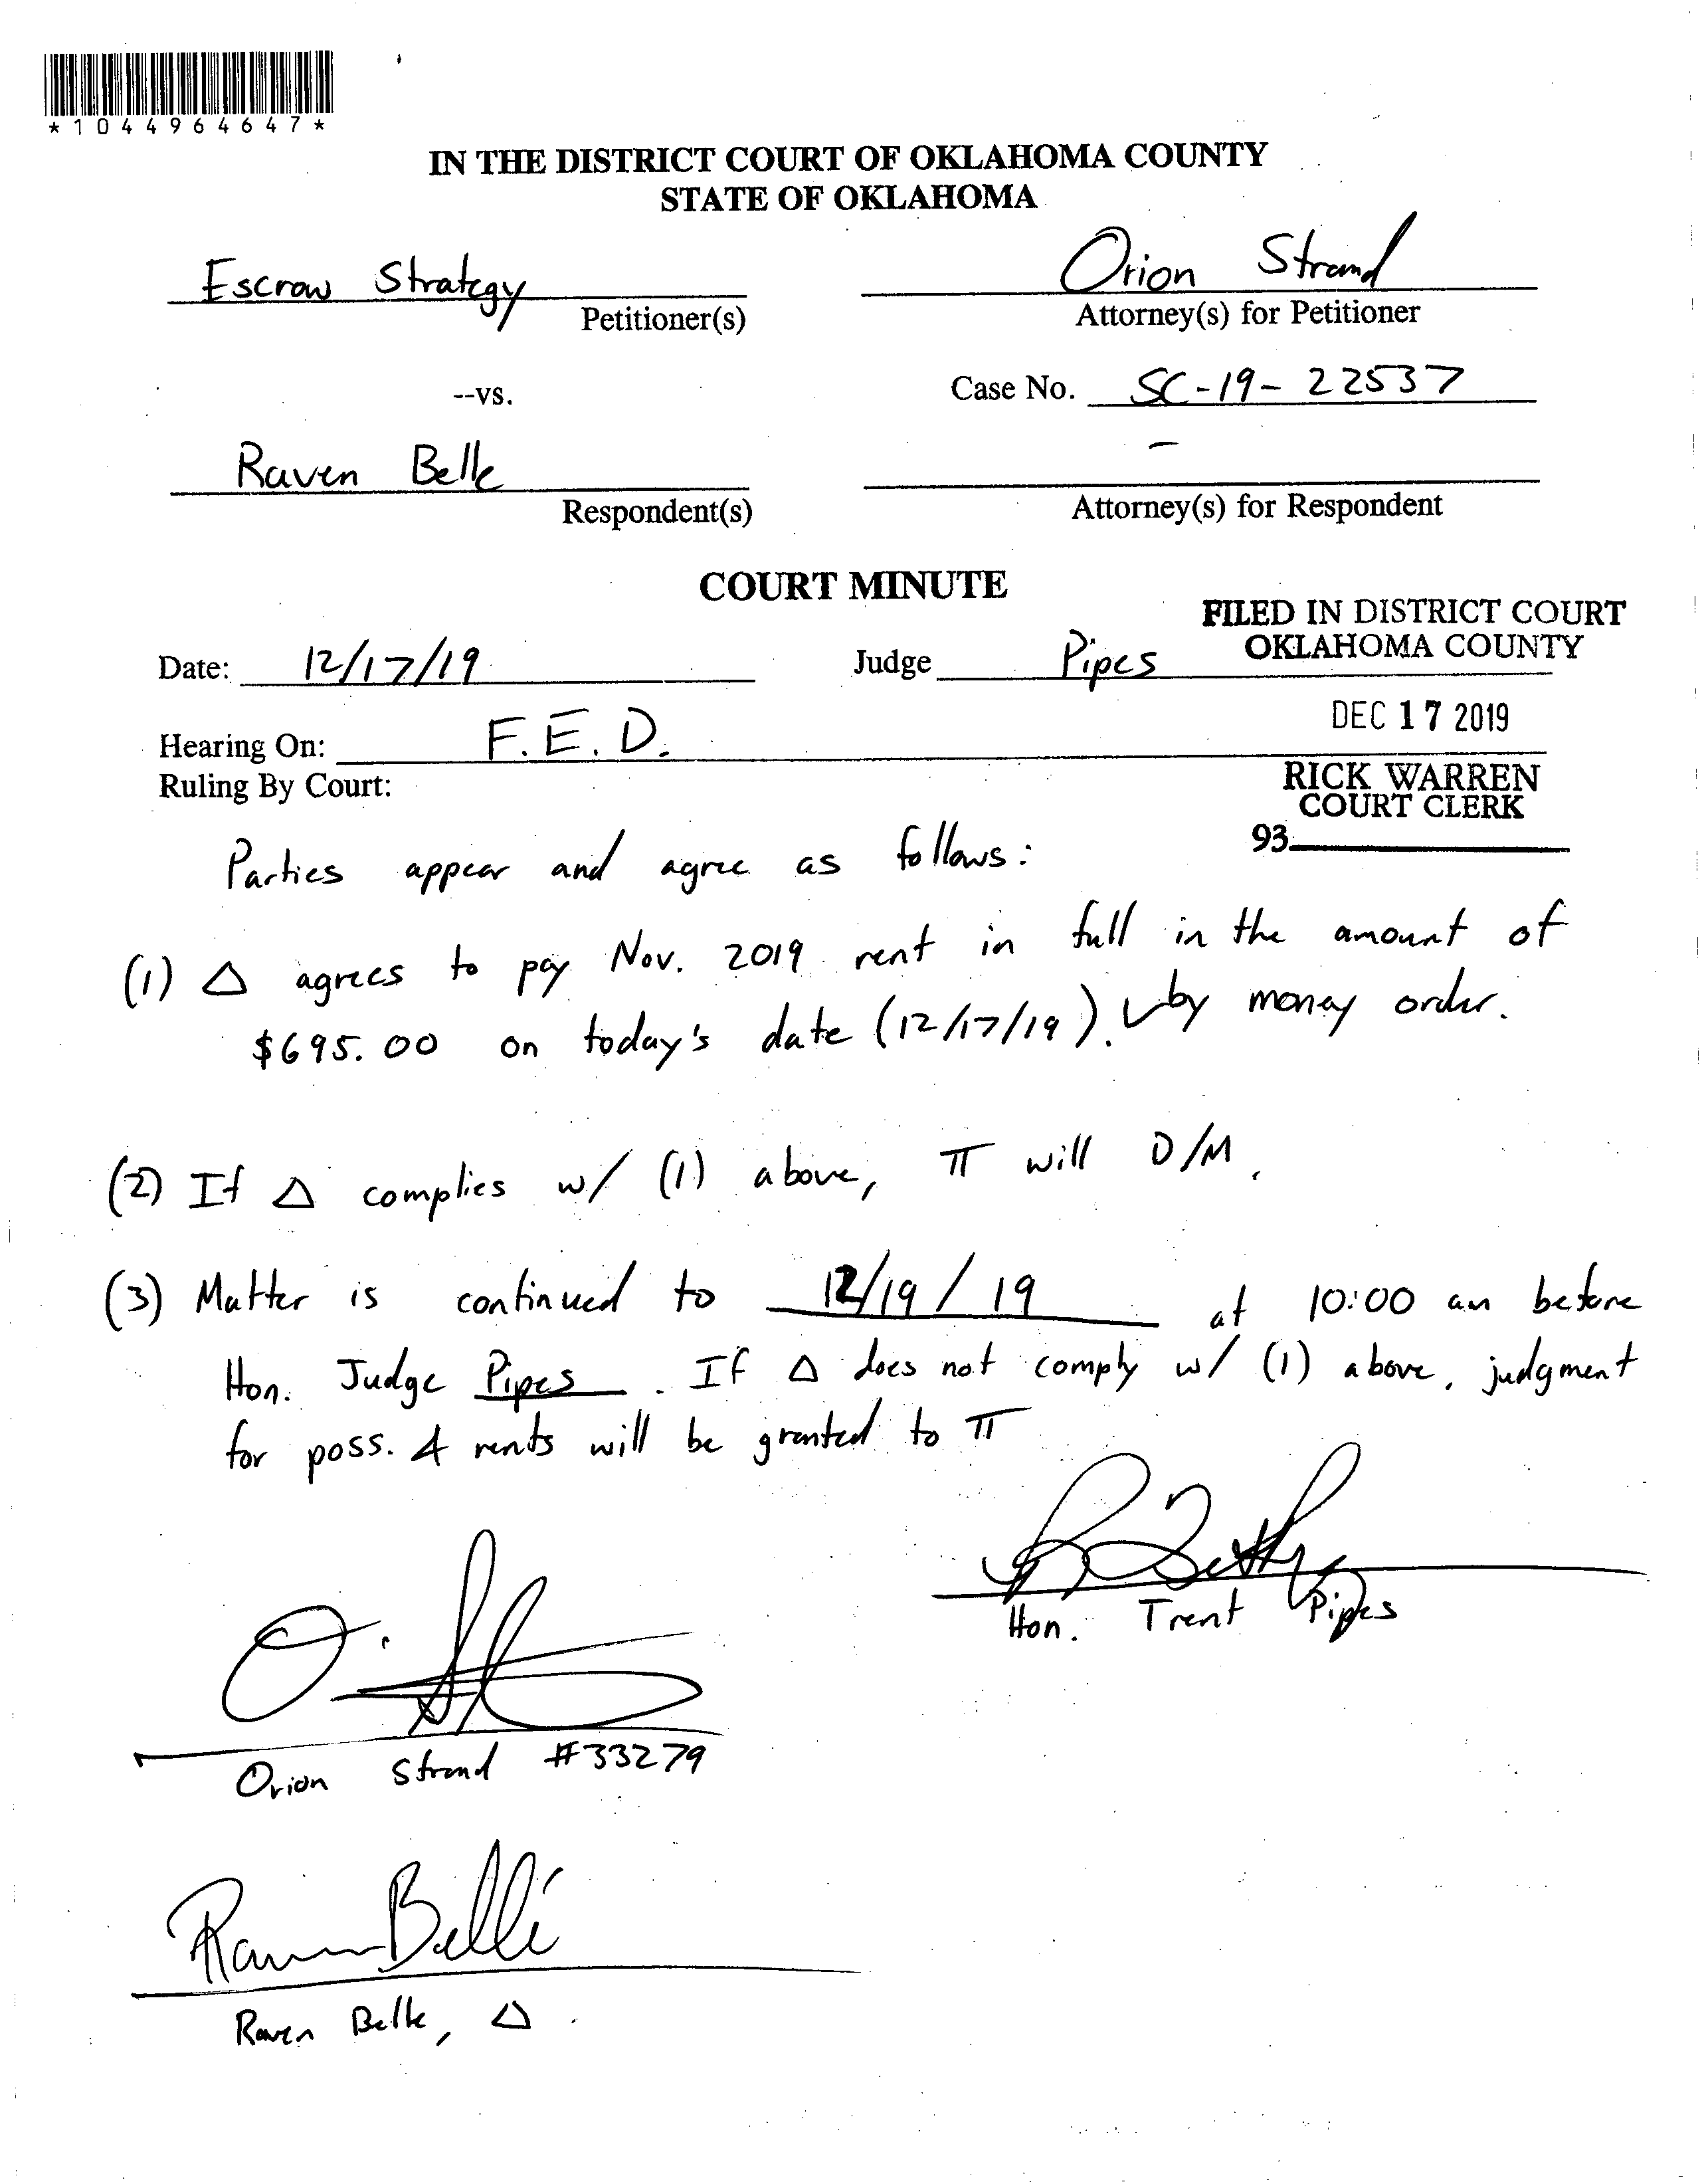 *1044964647*
IN THE DISTRICT COURT OF OKLAHOMA COUNTY
STATE OF OKLAHOMA
Escrow Strategy
Petitioner(s)
Orion Strand
Attorney(s) for Petitioner
--vs.
Case No. SC-19-22537
Raven Belle
Respondent(s)
-
Attorney(s) for Respondent
COURT MINUTE
FILED IN DISTRICT COURT
OKLAHOMA COUNTY
Date: 12/17/19
Judge Pipes
DEC 17 2019
Hearing On: F.E.D.
Ruling By Court:
RICK WARREN
COURT CLERK
93
Parties appear and agree as follows:
(1) Δ agrees to pay Nov. 2019 rent in full in the amount of
$695.00 on today's date (12/17/19). by money order.
(2) If Δ complies w/ (1) above, π will D/M.
(3) Matter is continued to 12/19/19 at 10:00 am before
Hon. Judge Pipes. If Δ does not comply w/ (1) above, judgment
for poss. & rents will be granted to π
Hon. Trent Pipes
Orion Strand #33279
Raven Belle
Raven Belle, Δ.